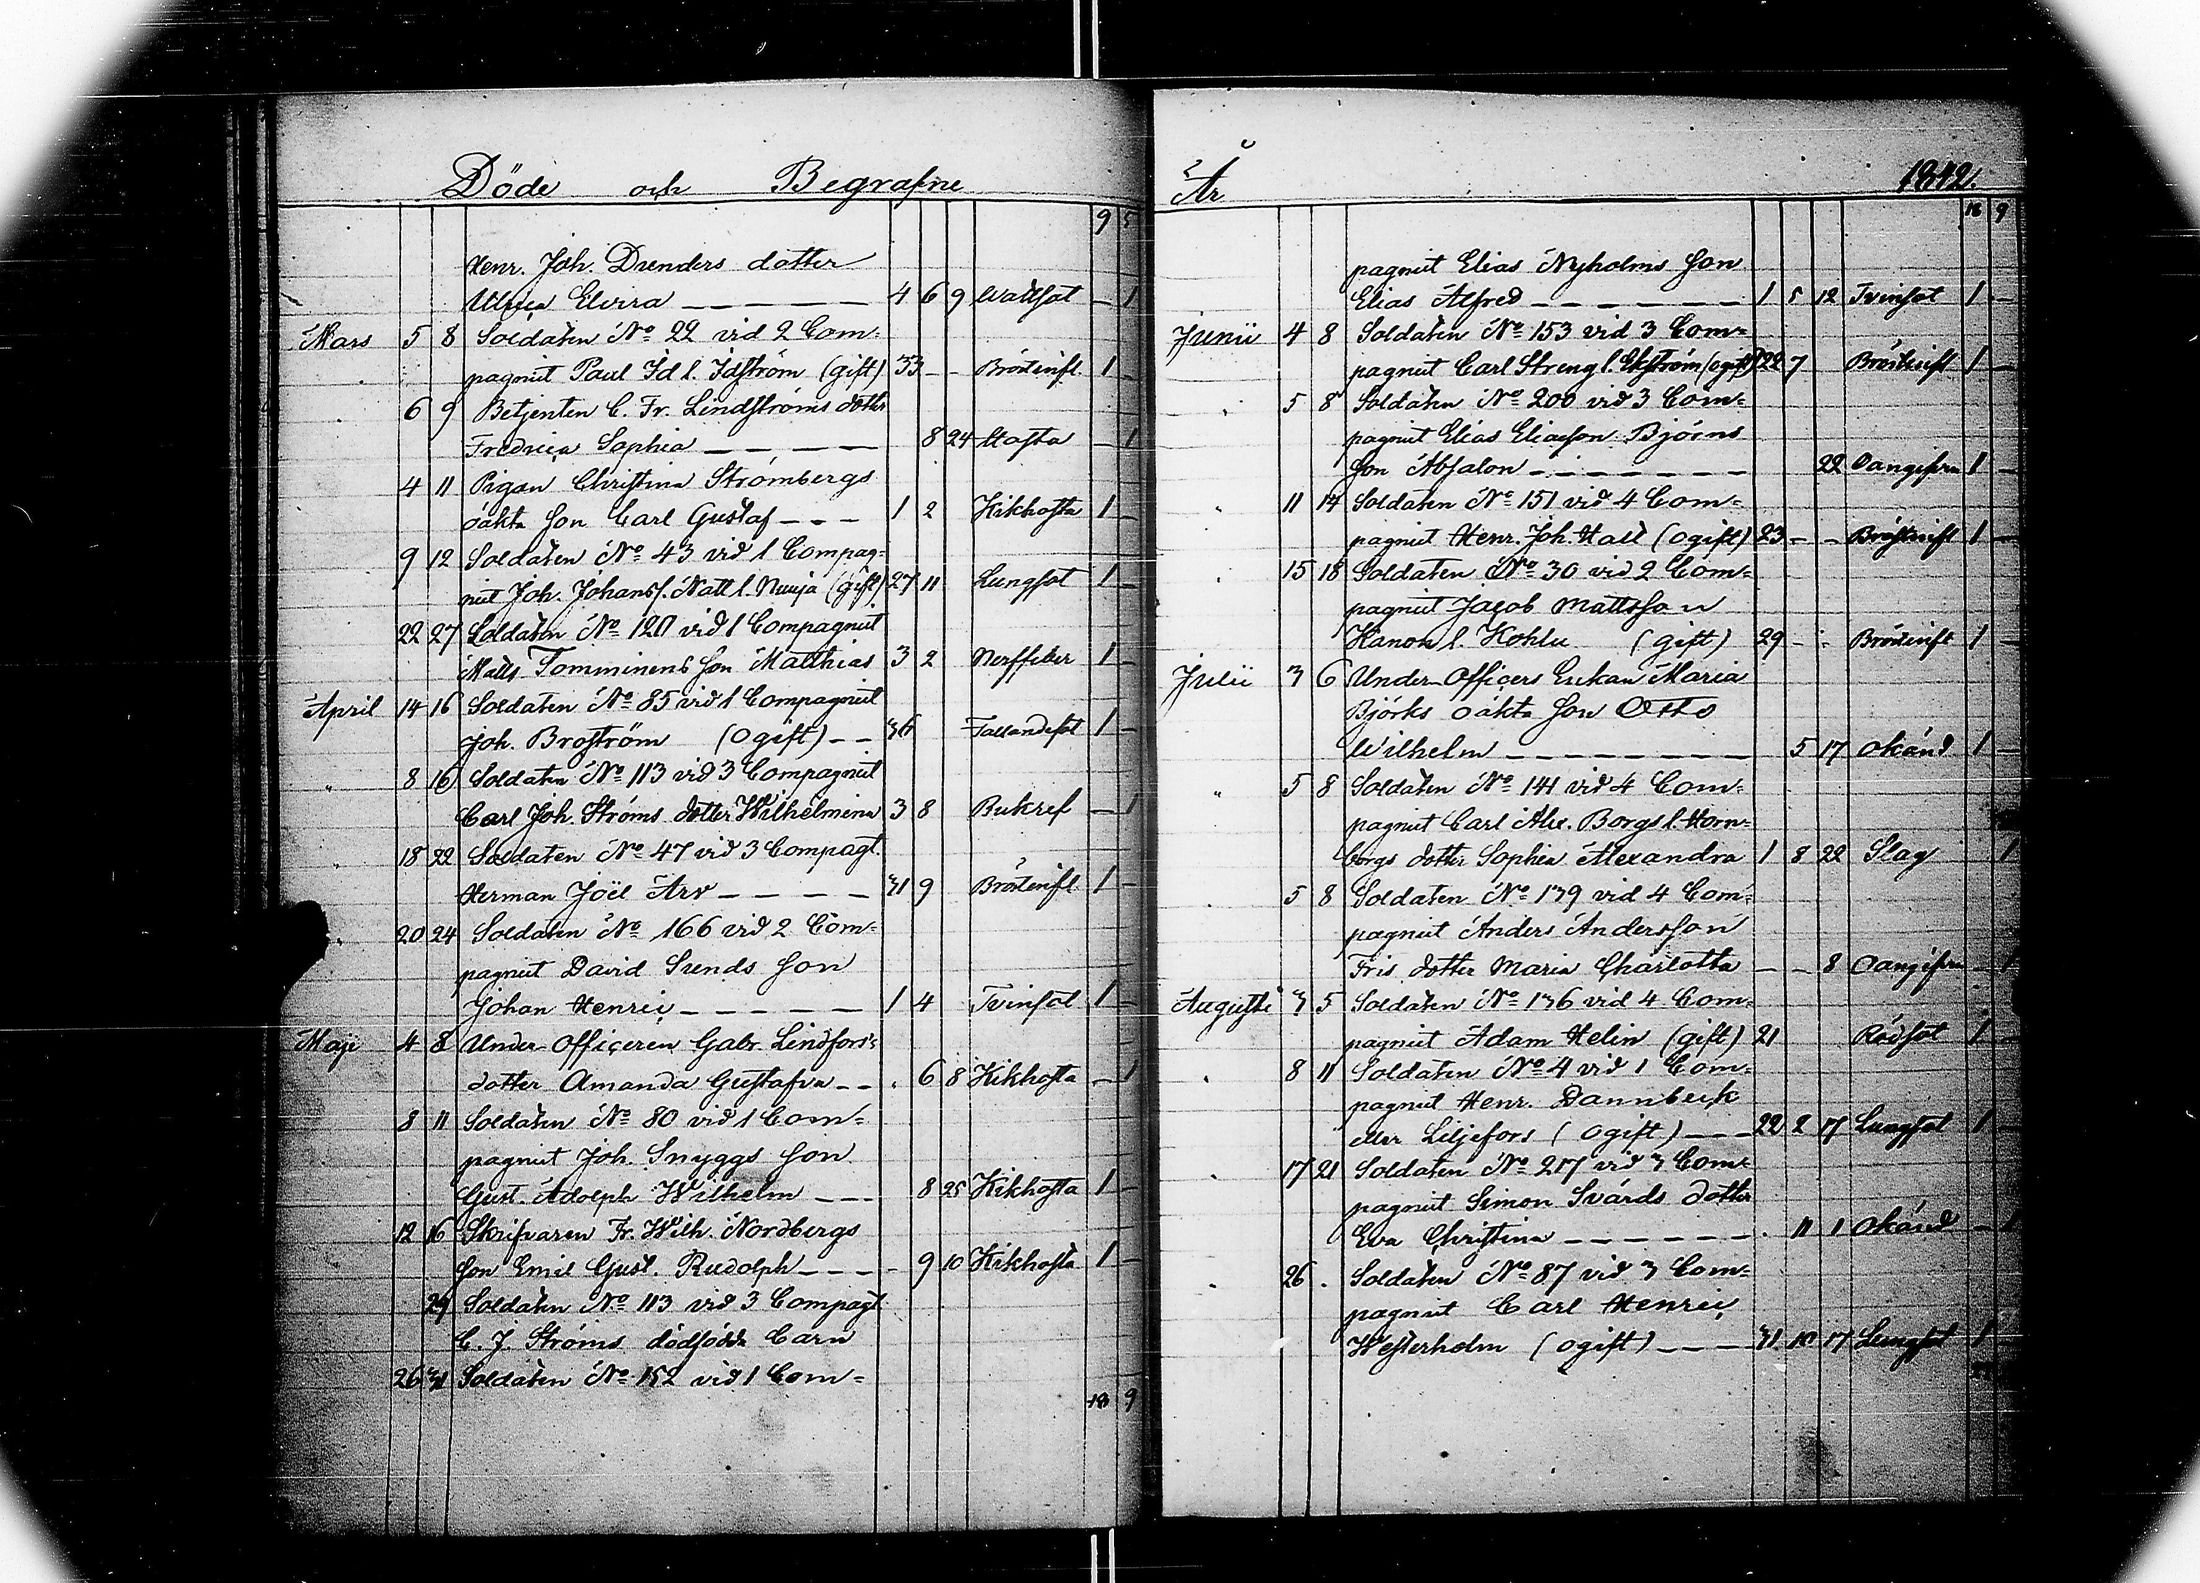 Döde och Begrafne
9 5
Henr. Joh. Drenders dotter
Ulrica Elvira — — — — — 4 6 9 Wattsot — 1
Mars 5 8 Soldaten No 22 vid 2 Com-
pagniet Paul Id l. Idström (gift) 33 — — Bröstinfl. 1 —
6 9 Betjenten C. Fr. Lindströms dotter
Fredrica Sophia — — — — 8 24 Hosta — 1
4 11 Pigan Christina Strömbergs
oäkta son Carl Gustaf — — — 1 2 Kikhosta 1 —
9 12 Soldaten No 43 vid 1 Compag-
niet Joh. Johanss. Natt l. (gift) 27 11 Lungsot 1 —
22 27 Soldaten No 120 vid 1 Compagniet
Matts Tomminens son Matthias 3 2 Nerffeber 1 —
April 14 16 Soldaten No 85 vid 1 Compagniet
Joh. Broström (ogift) — — 36 Fallandesot 1 —
" 8 16 Soldaten No 113 vid 3 Compagniet
Carl Joh. Ströms dotter Wilhelmina 3 8 Bukref — 1
18 22 Soldaten No 47 vid 3 Compagt.
Herman Joël Arv — — — — 31 9 Bröstinfl. 1 —
" 20 24 Soldaten No 166 vid 2 Com-
pagniet David Sunds son
Johan Henric — — — — — 1 4 Tvinsot 1 —
Maji 4 8 Under-Officeren Gabr. Lindfors'
dotter Amanda Gustafva — — . 6 8 Kikhosta — 1
8 11 Soldaten No 80 vid 1 Com-
pagniet Joh. Snyggs son
Gust. Adolph Wilhelm — — 8 25 Kikhosta 1 —
12 16 Skrifvaren Fr. Wilh. Nordbergs
son Emil Gust. Rudolph — — — 9 10 Kikhosta 1 —
29 Soldaten No 113 vid 3 Compagt.
C. J. Ströms dödfödda barn
26 31 Soldaten No 152 vid 1 Com-
18 9
År 1842.
18 9
pagniet Elias Nyholms son
Elias Alfred — — — — — — 1 5 12 Tvinsot 1 —
Junii 4 8 Soldaten No 153 vid 3 Com-
pagniet Carl Streng l. Ekström (ogift) 22 7 Bröstinfl 1 —
" 5 8 Soldaten No 200 vid 3 Com-
pagniet Elias Eliasson Björns
son Absalon — — — — — — 22 Oangifven 1 —
" 11 14 Soldaten No 151 vid 4 Com-
pagniet Henr. Joh. Hall (ogift) 23 — — Bröstinfl 1 —
" 15 18 Soldaten No 30 vid 2 Com-
pagniet Jacob Mattsson
Kanon l. Kohlu (gift) 29 — — Bröstinfl 1 —
Julii 3 6 Under-Officers Enkan Maria
Björks oäkta son Otto
Wilhelm — — — — — — — 5 17 Okänd 1 —
" 5 8 Soldaten No 141 vid 4 Com-
pagniet Carl Alex. Borgs l. Horn-
borgs dotter Sophia Alexandra 1 8 22 Slag 1
" 5 8 Soldaten No 139 vid 4 Com-
pagniet Anders Andersson
Fris dotter Maria Charlotta — — 8 Oangifven — 1
Augusti 3 5 Soldaten No 136 vid 4 Com-
pagniet Adam Helin (gift) 21 Rödsot 1 —
" 8 11 Soldaten No 4 vid 1 Com-
pagniet Henr. Dannbeck
eller Liljefors (ogift) — — — 22 2 17 Lungsot 1 —
" 17 21 Soldaten No 217 vid 3 Com-
pagniet Simon Svärds dotter
Eva Christina — — — — — — . 11 1 Okänd — 1
" 26 . Soldaten No 87 vid 3 Com-
pagniet Carl Henric
Westerholm (ogift) — — — 31 10 17 Lungsot 1 —